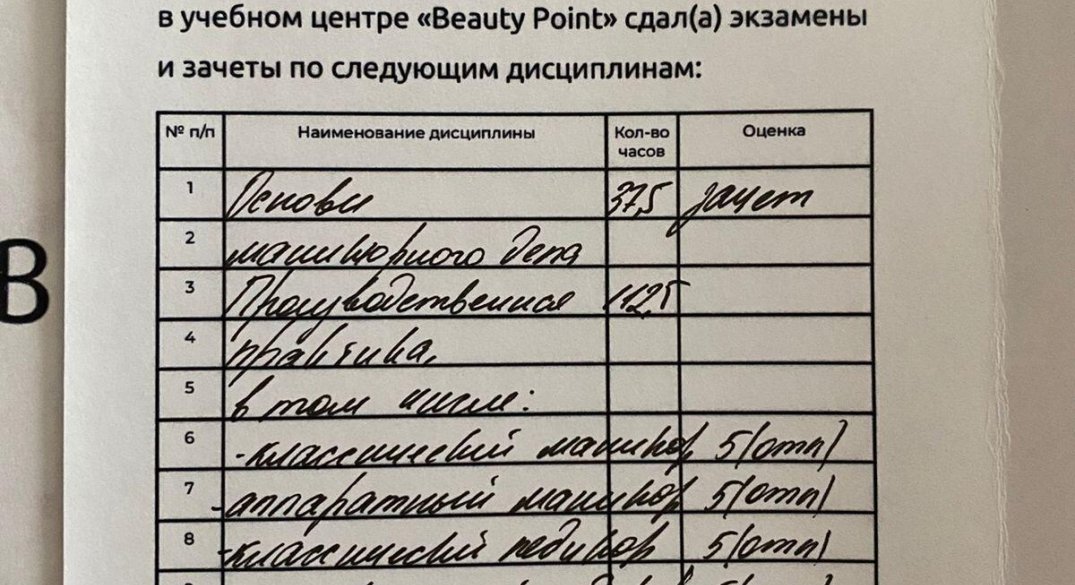 в учебном центре «Beauty Point» сдал(а) экзамены
и зачеты по следующим дисциплинам:
№ п/п Наименование дисциплины Кол-во часов Оценка
1 Основы 37,5 зачет
2 маникюрного дела
3 Производственная 112,5
4 практика,
5 в том числе:
6 -классический маникюр 5(отл)
7 -аппаратный маникюр 5(отл)
8 -классический педикюр 5(отл)
В